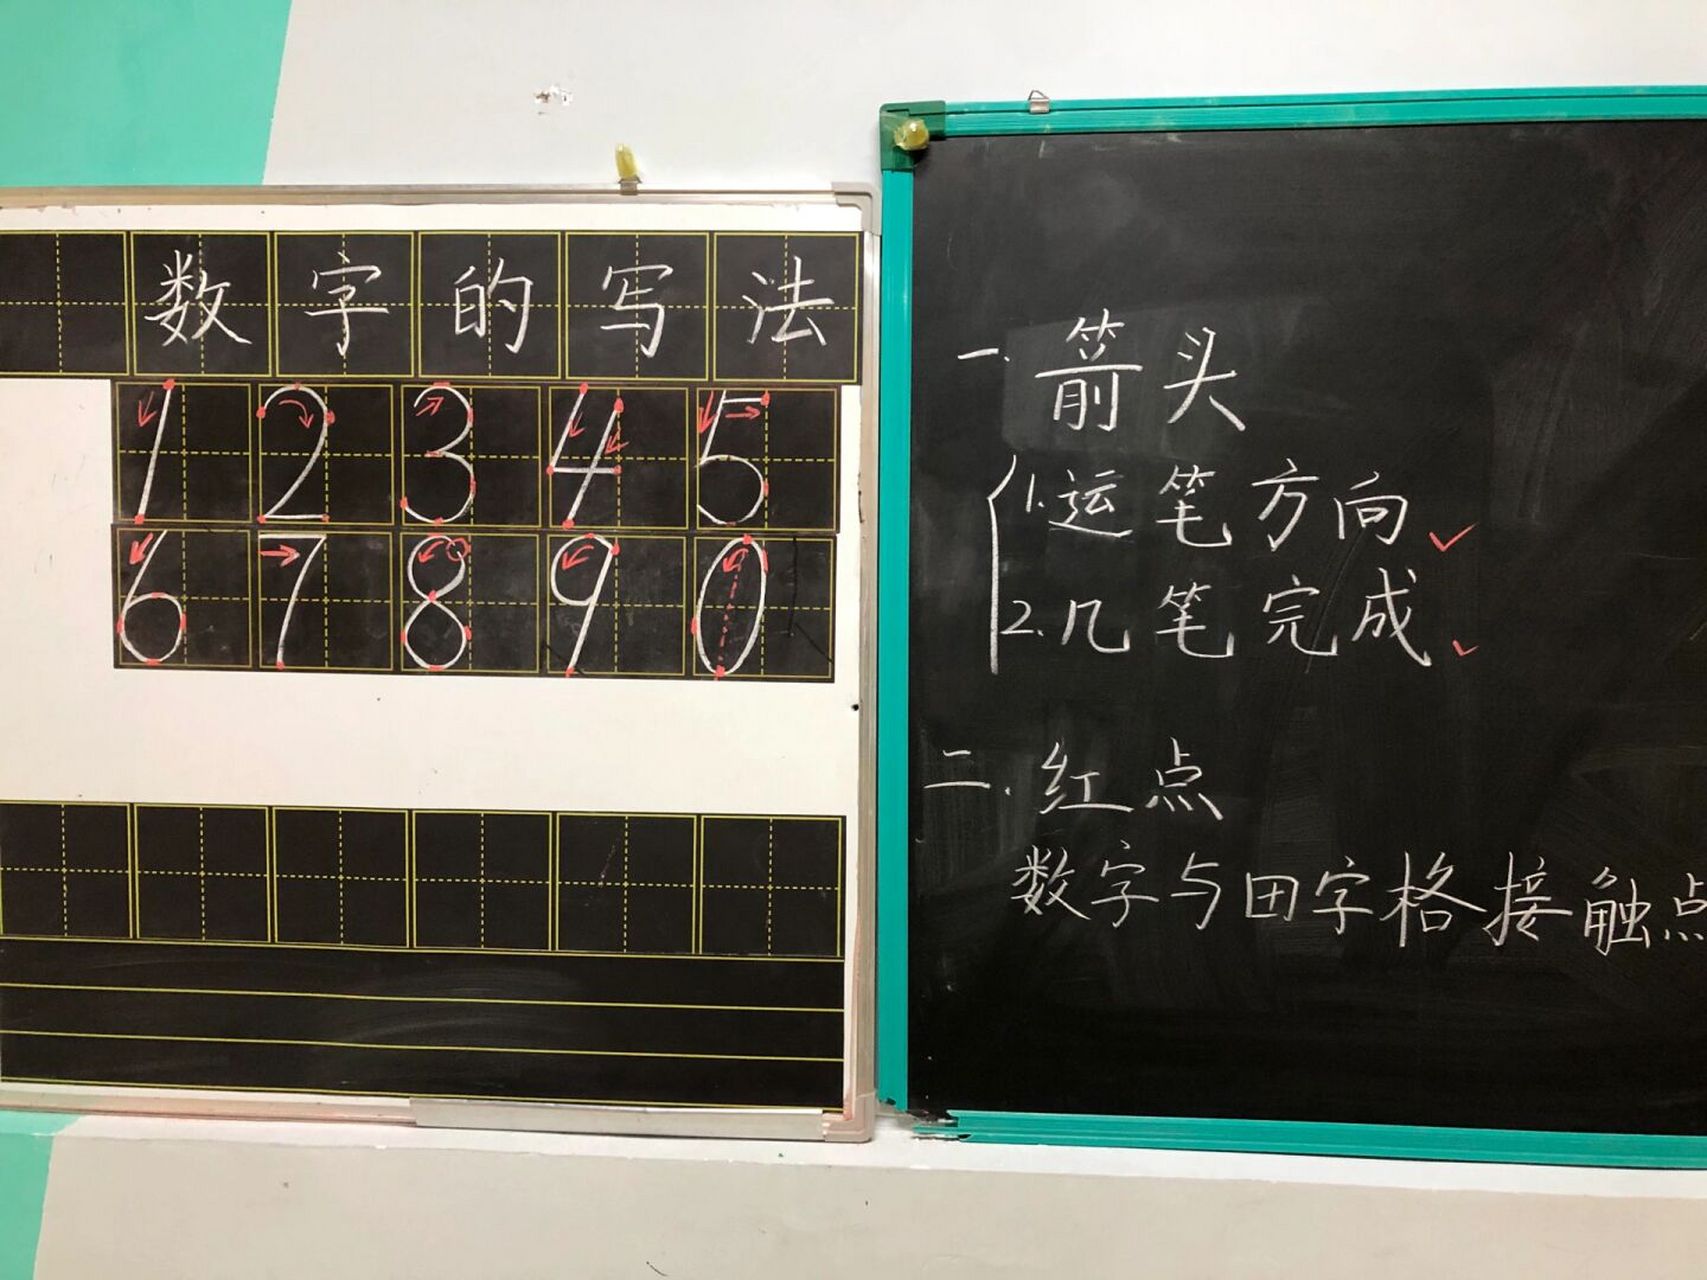 数字的写法
1 2 3 4 5
6 7 8 9 0
一.箭头
1.运笔方向
2.几笔完成
二.红点
数字与田字格接触点